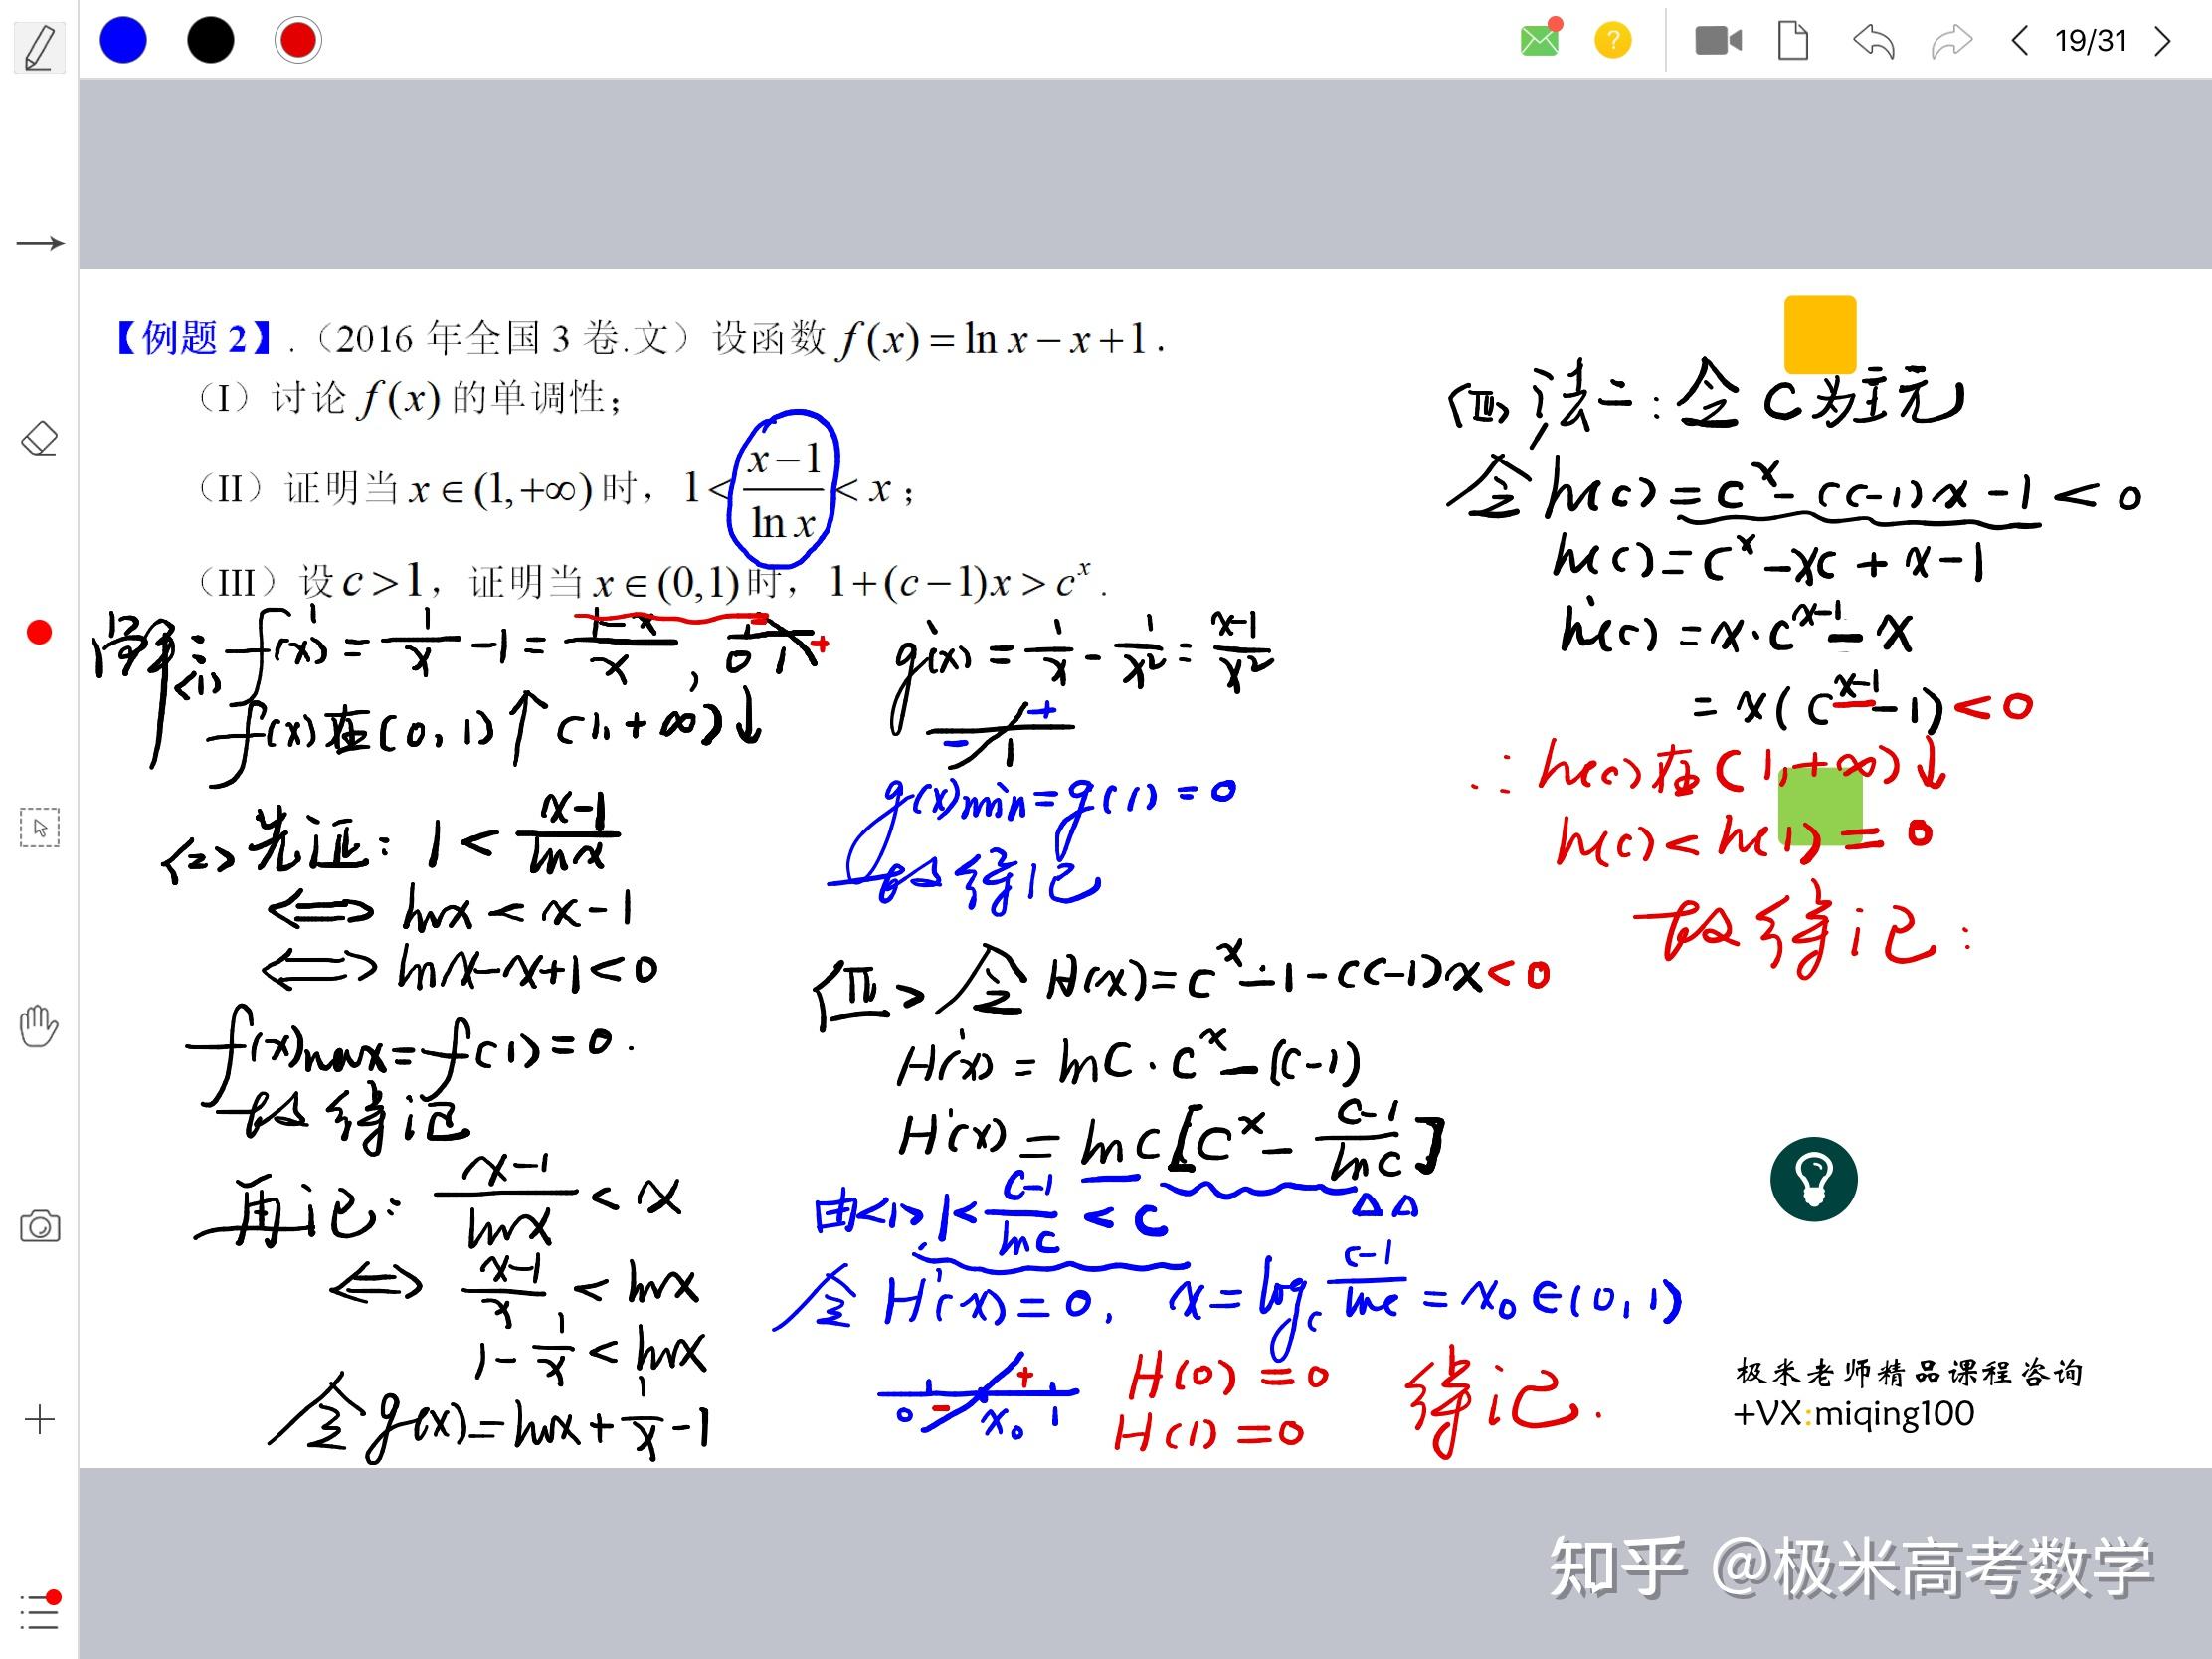 19/31
【例题2】.（2016 年全国 3 卷.文）设函数 f(x)=ln x−x+1.
（I）讨论 f(x) 的单调性；
（II）证明当 x∈(1,+∞) 时，1<(x−1)/(ln x)<x；
（III）设 c>1，证明当 x∈(0,1) 时，1+(c−1)x>c^x.
解：<1> f'(x)=1/x−1=(1−x)/x，0 1 +
f(x)在(0,1)↑(1,+∞)↓
<2> 先证：1<(x−1)/(lnx)
⟺ lnx<x−1
⟺ lnx−x+1<0
f(x)max=f(1)=0.
故得记
再记：(x−1)/(lnx)<x
⟺ (x−1)/x<lnx
1−1/x<lnx
令g(x)=lnx+1/x−1
g'(x)=1/x−1/x²=(x−1)/x²
− 1 +
g(x)min=g(1)=0
故得记
<III> 令 H(x)=c^x−1−(c−1)x<0
H'(x)=lnc·c^x−(c−1)
H'(x)=lnc[c^x−(c−1)/(lnc)]
由<1> 1<(c−1)/(lnc)<c △△
令 H'(x)=0, x=log_c (c−1)/(lnc)=x₀∈(0,1)
0 − x₀ + 1
H(0)=0
H(1)=0
得记.
<III> 法二：令 c为主元
令h(c)=c^x−(c−1)x−1<0
h(c)=c^x−xc+x−1
h'(c)=x·c^(x−1)−x
=x(c^(x−1)−1)<0
∴h(c)在(1,+∞)↓
h(c)<h(1)=0
故得记：
极米老师精品课程咨询
+VX:miqing100
知乎 @极米高考数学